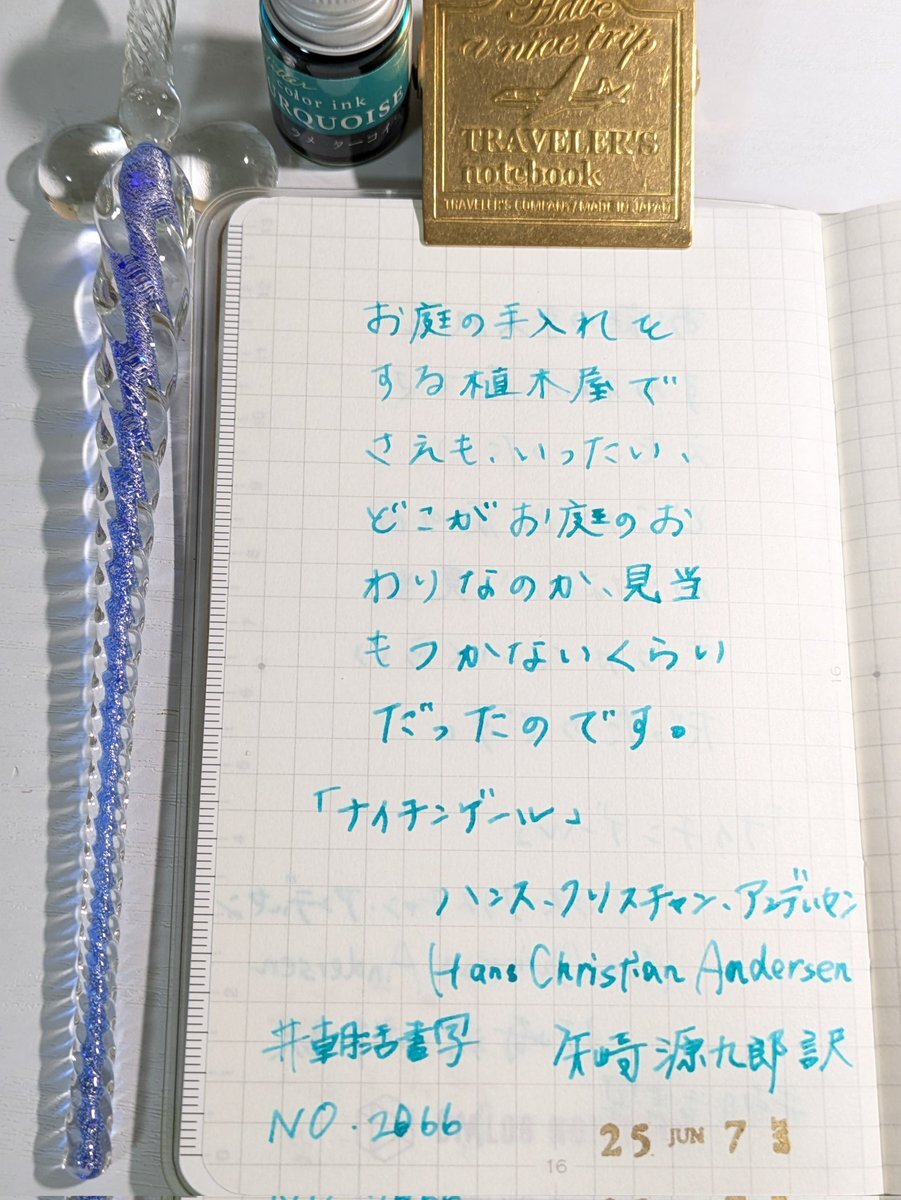 Have
a nice trip
TRAVELER'S
notebook
TRAVELER'S COMPANY / MADE IN JAPAN
color ink
TURQUOISE
お庭の手入れを
する植木屋で
さえも、いったい、
どこがお庭のお
わりなのか、見当
もつかないくらい
だったのです。
「ナイチンゲール」
ハンス・クリスチャン・アンデルセン
Hans Christian Andersen
#朝活書写 矢崎源九郎訳
NO.2066
25 JUN 7
16
16